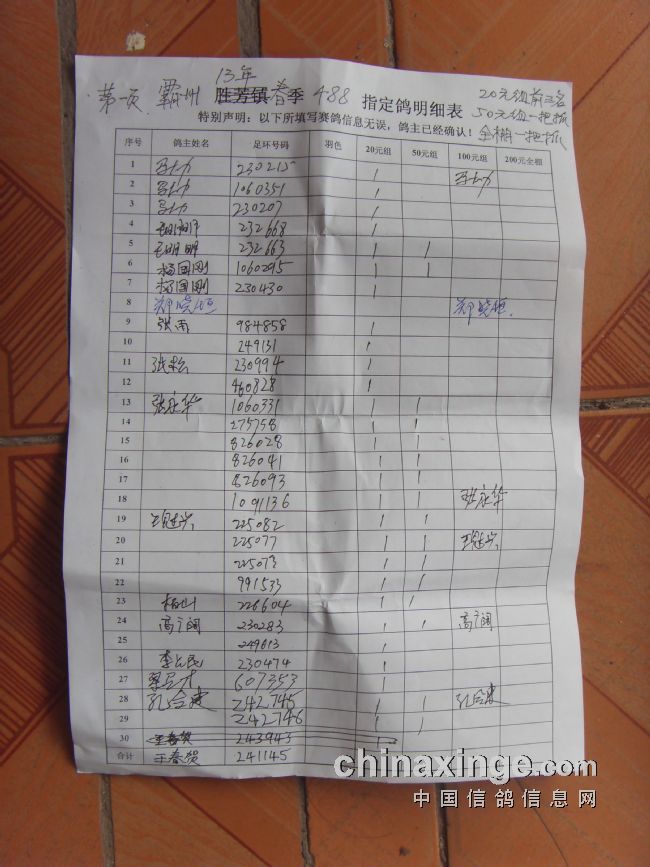 13年
第一页 霸州 胜芳镇春季 488 指定鸽明细表
20元组前三名
50元组一把抓
全棚一把抓
特别声明：以下所填写赛鸽信息无误，鸽主已经确认！
序号 鸽主姓名 足环号码 羽色 20元组 50元组 100元组 200元全棚
1 230215 /
2 1060351 /
3 230207 /
4 232668 /
5 232663 / /
6 杨国刚 1060295 / /
7 杨国刚 230430 /
8 郑晓恒 郑晓恒
9 张雨 984858 /
10 249131 /
11 张松 230994 /
12 460828 /
13 张永华 1060331 / /
14 275758 / /
15 826028 / /
16 826041 / /
17 826093 / /
18 1091136 / / 张永华
19 225082 / /
20 225077 / /
21 225073 / /
22 991533 / /
23 226604 / /
24 高广阔 230283 / / 高广阔
25 249613 /
26 230474 /
27 607353 /
28 孔令建 242745 / / 孔令建
29 242746 / /
30 王春贺 243943 /
合计 王春贺 241145 /
chinaxinge.com
中国信鸽信息网